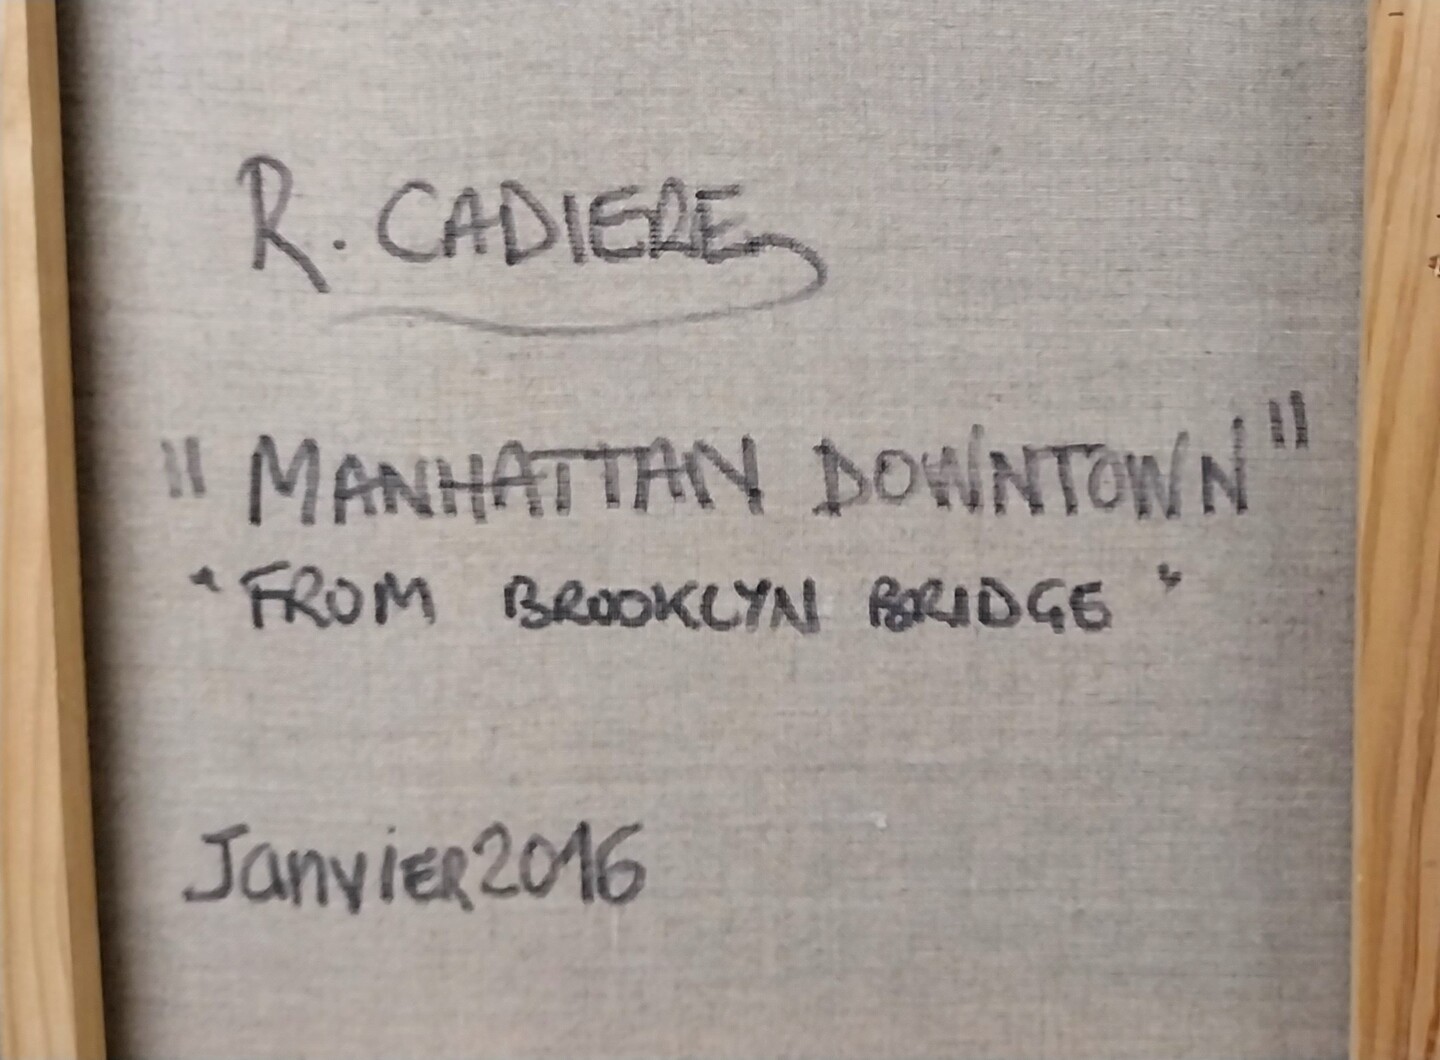 R. CADIERE
"MANHATTAN DOWNTOWN"
"FROM BROOKLYN BRIDGE"
JanviER 2016